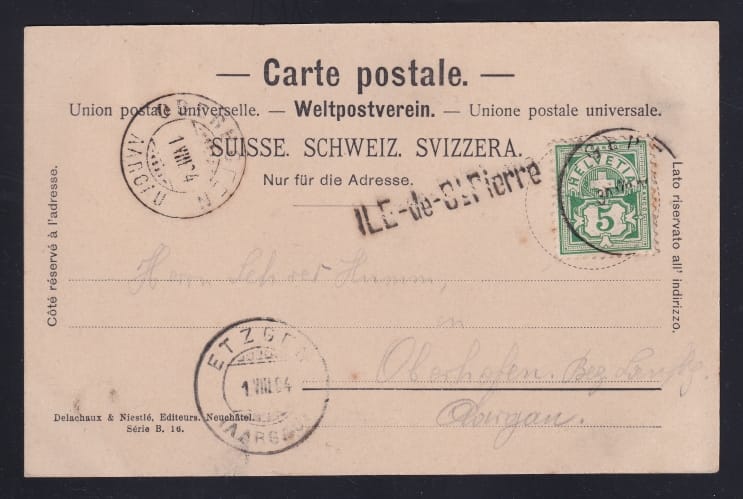 — Carte postale. —
Union postale universelle. — Weltpostverein. — Unione postale universale.
SUISSE. SCHWEIZ. SVIZZERA.
Nur für die Adresse.
ILE-de-St Pierre
AARGAU
1 VIII 04
HELVETIA
5
Côté réservé à l'adresse.
Lato riservato all' indirizzo.
Herrn
in
Oberhofen. Bez.
Aargau.
ETZGEN
1 VIII 04
(AARGAU)
Delachaux & Niestlé, Editeurs. Neuchâtel.
Série B. 16.